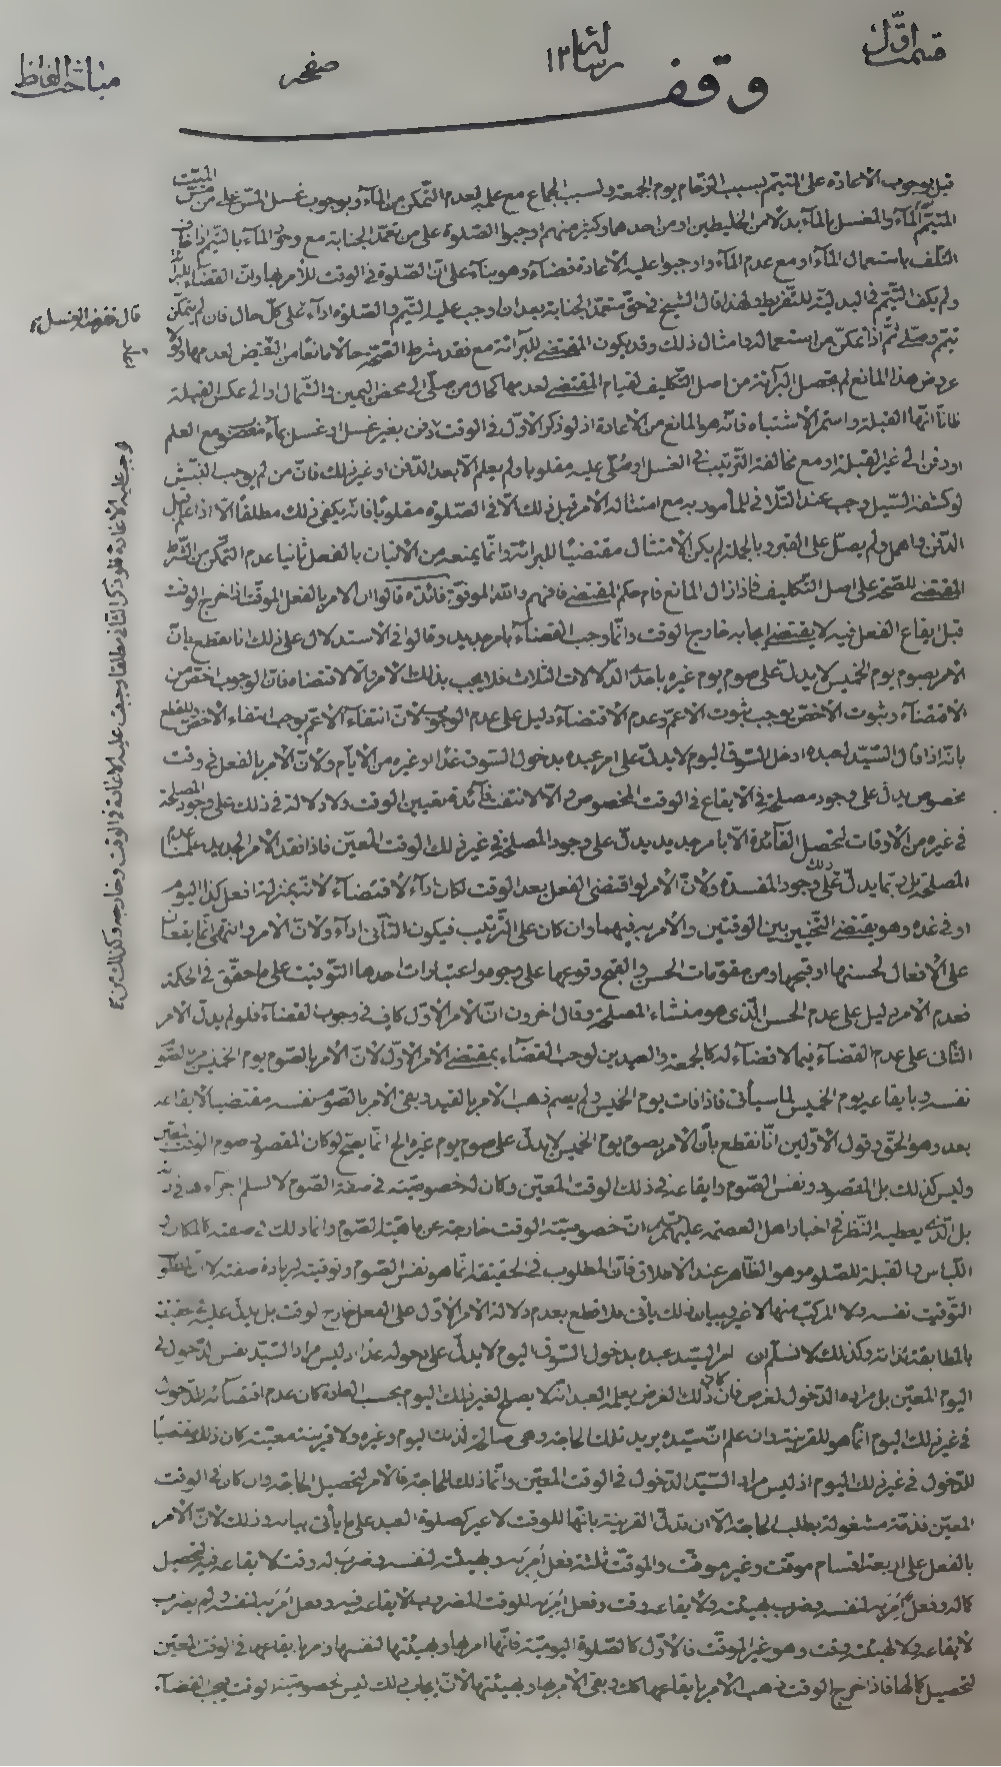 قسمت اوّل
رسالة ١٢
صفحه
مباحث الفاظ
وقف
قيل بوجوب الاعادة على المتيمّم لسبب الزحام يوم الجمعة ولسبب الجماع مع علمه بعدم التمكّن من المآء وبوجوب غسل المسّ على من مسّ الميّت
الميمّم المآء والمغسل بالمآء بدلا من الخليطين او من احدهما وكثير منهم اوجبوا الصّلوة على من تعمّد الجنابة مع وجود المآء بالتيمّم اذا خاف
التلف باستعمال المآء او مع عدم المآء واوجبوا عليه الاعادة قضآء وهو بنآء على انّ الصّلوة في الوقت للأمر بها وانّ القضآء
ولم يكف التيمّم في البدليّة للتفريط ولهذا قال الشيخ في حقّ متعمّد الجنابة بعد ان اوجب عليه التيمّم والصّلوة ادآء على كلّ حال فان لم يتمكّن
تيمّم وصلّى ثمّ اذا تمكّن من استعماله وامثال ذلك وقد يكون المقتضى للبرائة مع فقد شرط الصّحّة حالا مانعا من النقيض لعدمها ولو
عرض هذا المانع لم يحصل البرآئة من اصل التّكليف لقيام المقتضى لعدمها كحال من صلّى الى محض اليمين والشّمال او الى عكس القبلة
ظانّا انّها القبلة واستمرّ الاشتباه فانّه هو المانع من الاعادة اذ لو ذكر الاوّل في الوقت او دفن بغير غسل او غسل بمآء مع العلم
او دفن الى غير القبلة او مع مخالفة التّرتيب في الغسل او صُلّى عليه مقلوبا ولم يعلم الّا بعد الدّفن او غير ذلك فانّ من لم يوجب النّبش
لو كشفه السّيل وجب عنده التّلافي للمأمور به مع امتثاله الامر قبل ذلك الّا في الصّلوة مقلوبا فانّه يكفي ذلك مطلقا الّا اذا علم قبل
الدّفن واهمل ولم يصلّ على القبر وبالجملة لم يكن الامتثال مقتضيا للبرائة وانّما يمنعه من الاتيان بالفعل ثانيا عدم التمكّن من الشرط
المقتضى للصّحّة على اصل التّكليف فاذا زال المانع قام حكم المقتضى فافهم والله الموفّق فائدة قالوا ان الامر بالفعل الموقّت اذا خرج الوقت
قبل ايقاع الفعل فيه لا يقتضى ايجابه خارج الوقت وانّما وجب القضآء بامر جديد وقالوا في الاستدلال على ذلك انا نقطع بانّ
الامر بصوم يوم الخميس لا يدلّ على صوم يوم غيره باحدى الدّلالات الثلاث فلا يجب بذلك الامر والّا لاقتضاه فانّ الوجوب اخصّ من
الاقتضآء وثبوت الاخصّ يوجب ثبوت الاعمّ وعدم الاقتضآء دليل على عدم الوجوب لانّ انتفاء الاعمّ يوجب انتفاء الاخصّ وللقطع
بانّه اذا قال السّيّد لعبده ادخل السّوق اليوم لا يدلّ على امر عبده بدخول السّوق غدا او غيره من الايّام ولانّ الامر بالفعل في وقت
مخصوص يدلّ على وجود مصلحة في الايقاع في الوقت المخصوص والّا لانتفت فآئدة تعيين الوقت ولا دلالة في ذلك على وجود المصلحة
في غيره من الاوقات لتحصل الفآئدة الّا بامر جديد يدلّ على وجود المصلحة في غير ذلك الوقت المعيّن فاذا فقد الامر الجديد علمنا عدم
المصلحة بل ربّما يدلّ ذلك على وجود المفسدة ولانّ الامر لو اقتضى الفعل بعد الوقت لكان ادآء لاقتضآء لانّه بمنزلة افعل كذا اليوم
او في غده وهو يقتضى التّخيير بين الوقتين والامر به فيهما وان كان على التّرتيب فيكون الثّانى ادآء ولانّ الامر والنّهى انّما يقعان
على الافعال لحسنها او قبحها ومن مقوّمات الحسن والقبح وقوعها على وجوه واعتبارات احدها التّوقيت على ما حقّق في الحكمة
فعدم الامر دليل على عدم الحسن الّذى هو منشاء المصلحة وقال اخرون انّ الامر الاوّل كاف في وجوب القضآء فلو لم يدلّ الامر
الثّانى على عدم القضآء فيما لا قضآء له كالجمعة والعيدين لوجب القضآء بمقتضى الامر الاوّل لانّ الامر بالصّوم يوم الخميس امر بالصّوم
نفسه وبايقاعه يوم الخميس لما سيأتى فاذا فات يوم الخميس ولم يصم ذهب الامر بالقيد وبقى الامر بالصّوم نفسه مقتضيا لايقاعه
بعده وهو الحقّ وقول الاوّلين انّا نقطع بأنّ الامر بصوم يوم الخميس لا يدلّ على صوم يوم غيره الخ انّما يصحّ لو كان المقصود صوم الوقت المعيّن
وليس كذلك بل المقصود نفس الصّوم وايقاعه في ذلك الوقت المعيّن وكان له خصوصيّة في صفة الصّوم لا نسلم اجزآءه في
بل الّذى يعطيه النّظر في اخبار اهل العصمة عليهم السّلام انّ خصوصيّة الوقت خارجة عن ماهيّة الصّوم وانّما ذلك في صفته كالمكان و
اللّباس والقبلة للصّلوة وهو الظّاهر عند الاطلاق فانّ المطلوب في الحقيقة انّما هو نفس الصّوم وتوقيته لزيادة صفته لا انّ المطلوب
التّوقيت نفسه ولا المركّب منهما لا غير وبيان ذلك يأتى فلا قطع بعدم دلالة الامر الاوّل على الفعل خارج الوقت بل يدلّ عليه حقيقة
بالمطابقة لذاته وكذلك لا نسلّم ان امر السّيّد عبده بدخول السّوق اليوم لا يدلّ على دخوله غدا اذ ليس مراد السّيّد نفس الدّخول في
اليوم المعيّن بل مراده الدّخول لغرض فان كان ذلك الغرض يعلم العبد انّه لا يصلح لغير ذلك اليوم بحسب العادة كان عدم اقتضآئه للدّخول
في غير ذلك اليوم انّما هو للقرينة وان علم انّ سيّده يريد تلك الحاجة وهى صالحة لذلك اليوم وغيره ولا قرينة معيّنة كان ذلك مقتضيا
للدّخول في غير ذلك اليوم اذ ليس مراد السّيّد الدّخول في الوقت المعيّن وانّما ذلك للحاجة فالامر لتحصيل الحاجة وان كان في الوقت
المعيّن فذمّته مشغولة بطلب الحاجة الّا ان تدلّ القرينة بانّها للوقت لا غير كصلوة العيد على ما يأتى بيانه وذلك لانّ الامر
بالفعل على اربعة اقسام موقّت وغير موقّت والموقّت ثلثة فعل اُمِرَ به وبهيئته لنفسه وضرب له وقت لايقاعه فيه لتحصيل
كماله وفعل اُمِرَ به لنفسه وضرب لهيئته ولايقاعه وقت وفعل اُمِرَ به للوقت المضروب لايقاعه فيه وفعل اُمِرَ به لنفسه ولم يضرب
لايقاعه ولا لهيئته وقت وهو غير الموقّت فالاوّل كالصّلوة اليوميّة فانّها امر بها وبهيئتها لنفسها وامر بايقاعها في الوقت المعيّن
لتحصيل كمالها فاذا خرج الوقت ذهب الامر بايقاعها كك وبقى الامر بها وبهيئتها لانّ ايجاب ذلك ليس لخصوصيّة الوقت فيجب القضآء